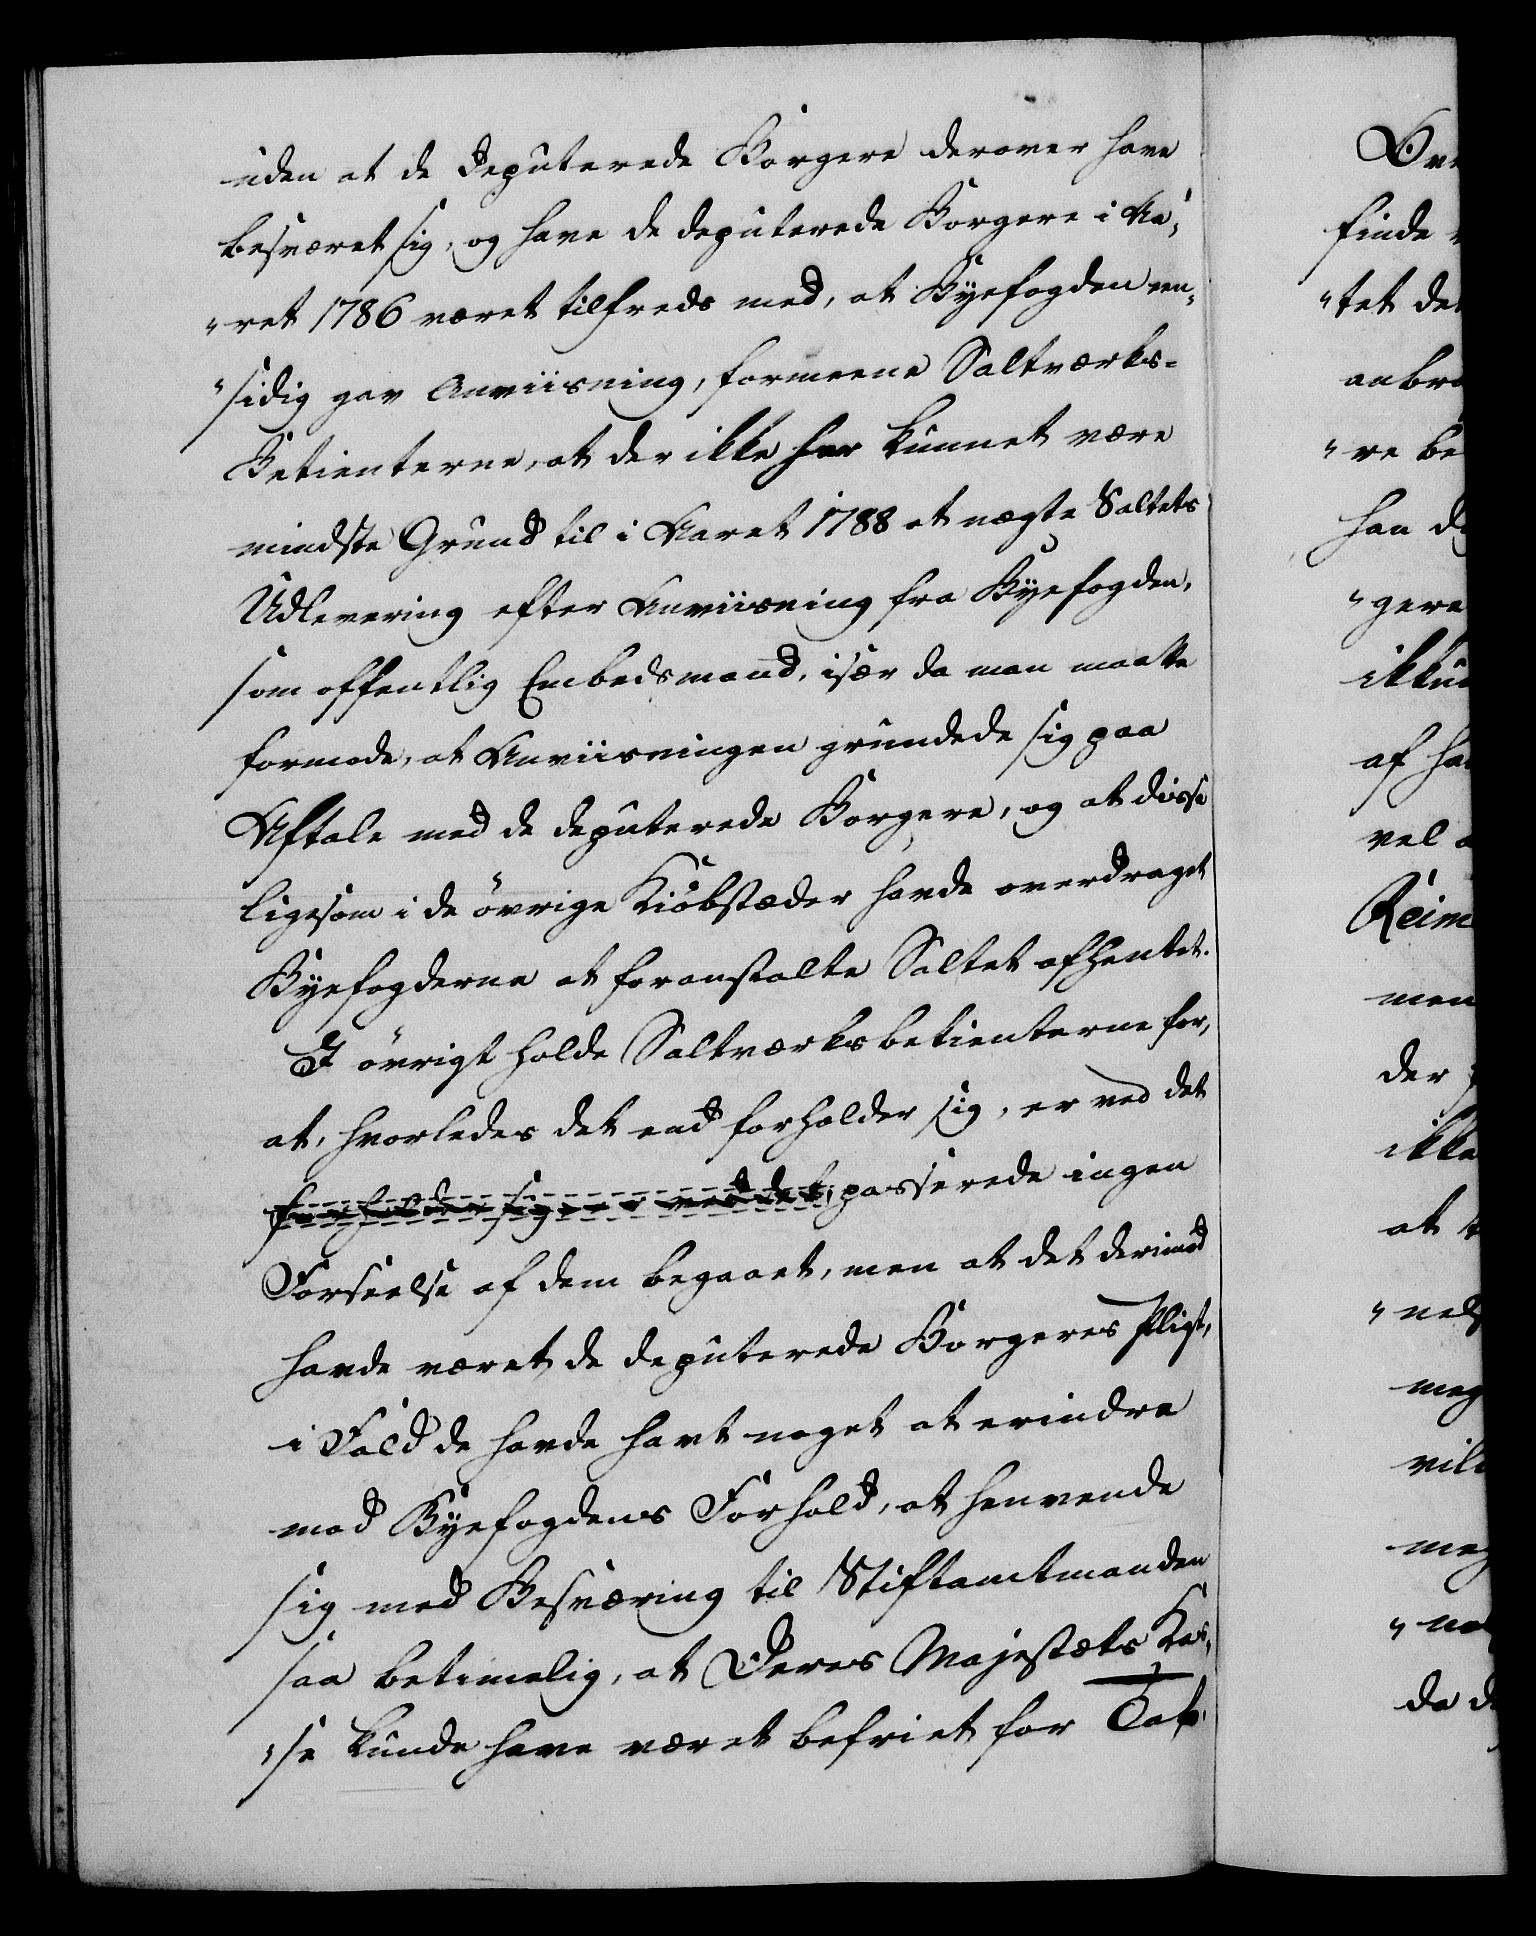 uden at de deputerede Borgere derover have
besværet sig, og have de deputerede Borgere i Aa„
„ret 1786 været tilfreds med, at Byefogden een„
„sidig gav Anviisning, formeene Saltværks-
Betienterne, at der ikke har kunnet være
mindste Grund til i Aaret 1788 at nægte Saltets
Udlevering efter Anviisning fra Byefogden,
som offentlig Embedsmand, især da man maatte
formode, at Anviisningen grundede sig paa
Aftale med de deputerede Borgere, og at disse
ligesom i de övrige Kiöbstæder havde overdraget
Byefogderne at foranstalte Saltet afhentet.
I övrigt holde Saltværksbetienterne for,
at, hvorledes det end forholder sig, er ved det
forholder sig er ved det, passerede ingen
Forseelse af dem begaaet, men at det derimod
havde været de deputerede Borgeres Pligt,
i Fald de havde havt noget at erindre
mod Byefogdens Forhold, at henvende
sig med Besværing til Stiftamtmanden
saa betimelig, at Deres Majestæts Kas„
„se kunde have været befriet for Tab.
Ove
finde
„tet de
anbra
„re be
han d
„gere
ikkun
af ha
vel
Reim
men
der
ikke
at
„nels
meg
vil
meg
da d